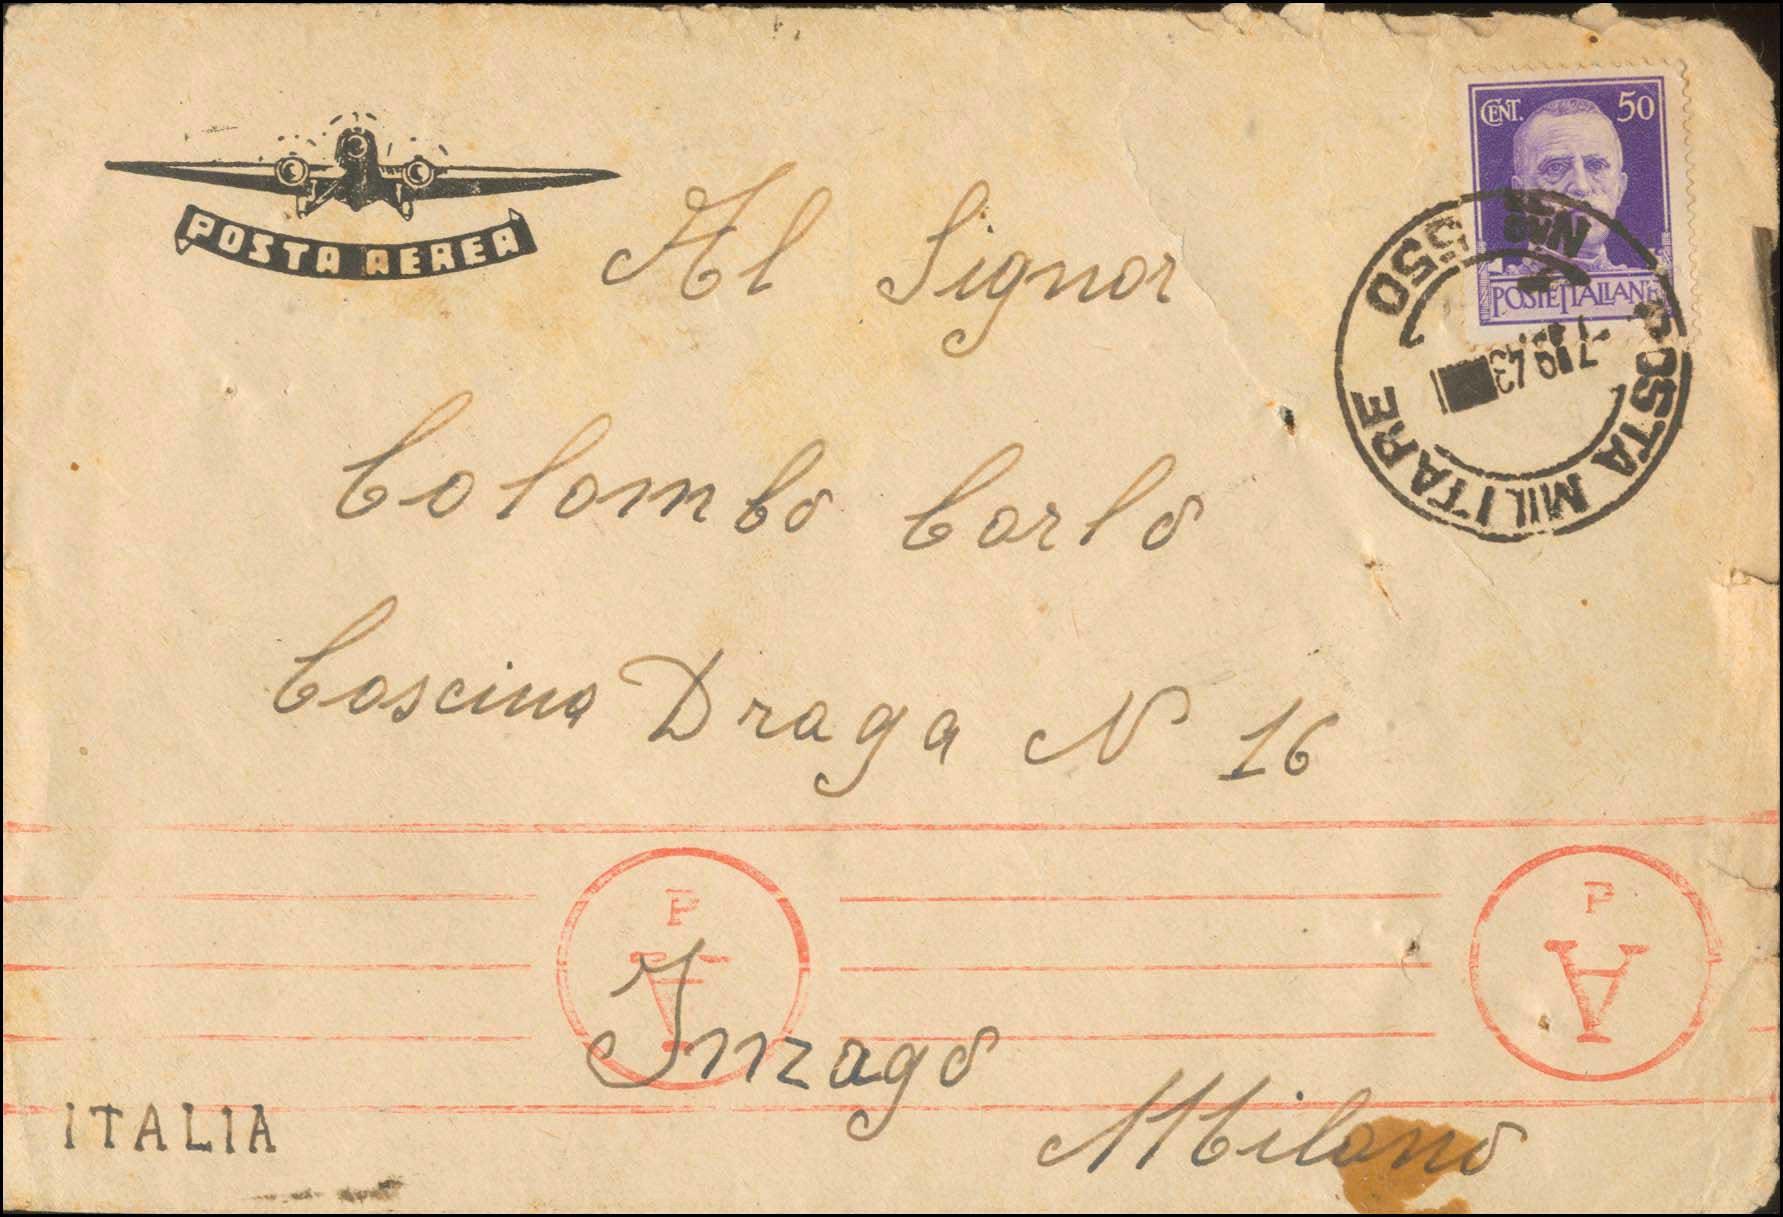 POSTA AEREA
CENT. 50
POSTE ITALIANE
POSTA MILITARE 550
Al Signor
Colombo Carlo
Cascina Draga N 16
P
A
P
A
Inzago
Milano
ITALIA